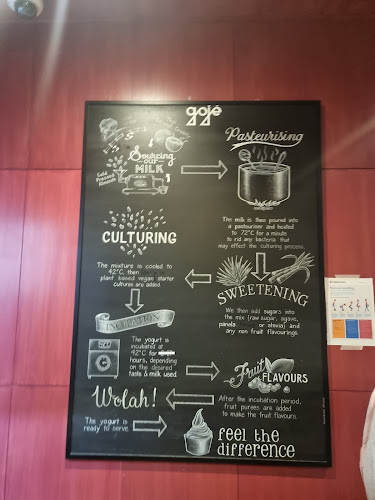 gojé
Sourcing
our
MILK
Pasteurising
The milk is then poured into
a pasteuriser and heated
to 72°C for a minute
to rid any bacteria that
may effect the culturing process.
CULTURING
The mixture is cooled to
42°C, then
plant based vegan starter
cultures are added.
SWEETENING
We then add sugars into
the mix (raw sugar, agave,
panela, or stevia) and
any non fruit flavourings.
INCUBATION
The yogurt is
incubated at
42°C for
hours, depending
on the desired
taste & milk used.
Fruit
FLAVOURS
After the incubation period,
fruit purees are added
to make the fruit flavours.
Wolah!
The yogurt is
ready to serve.
feel the
difference